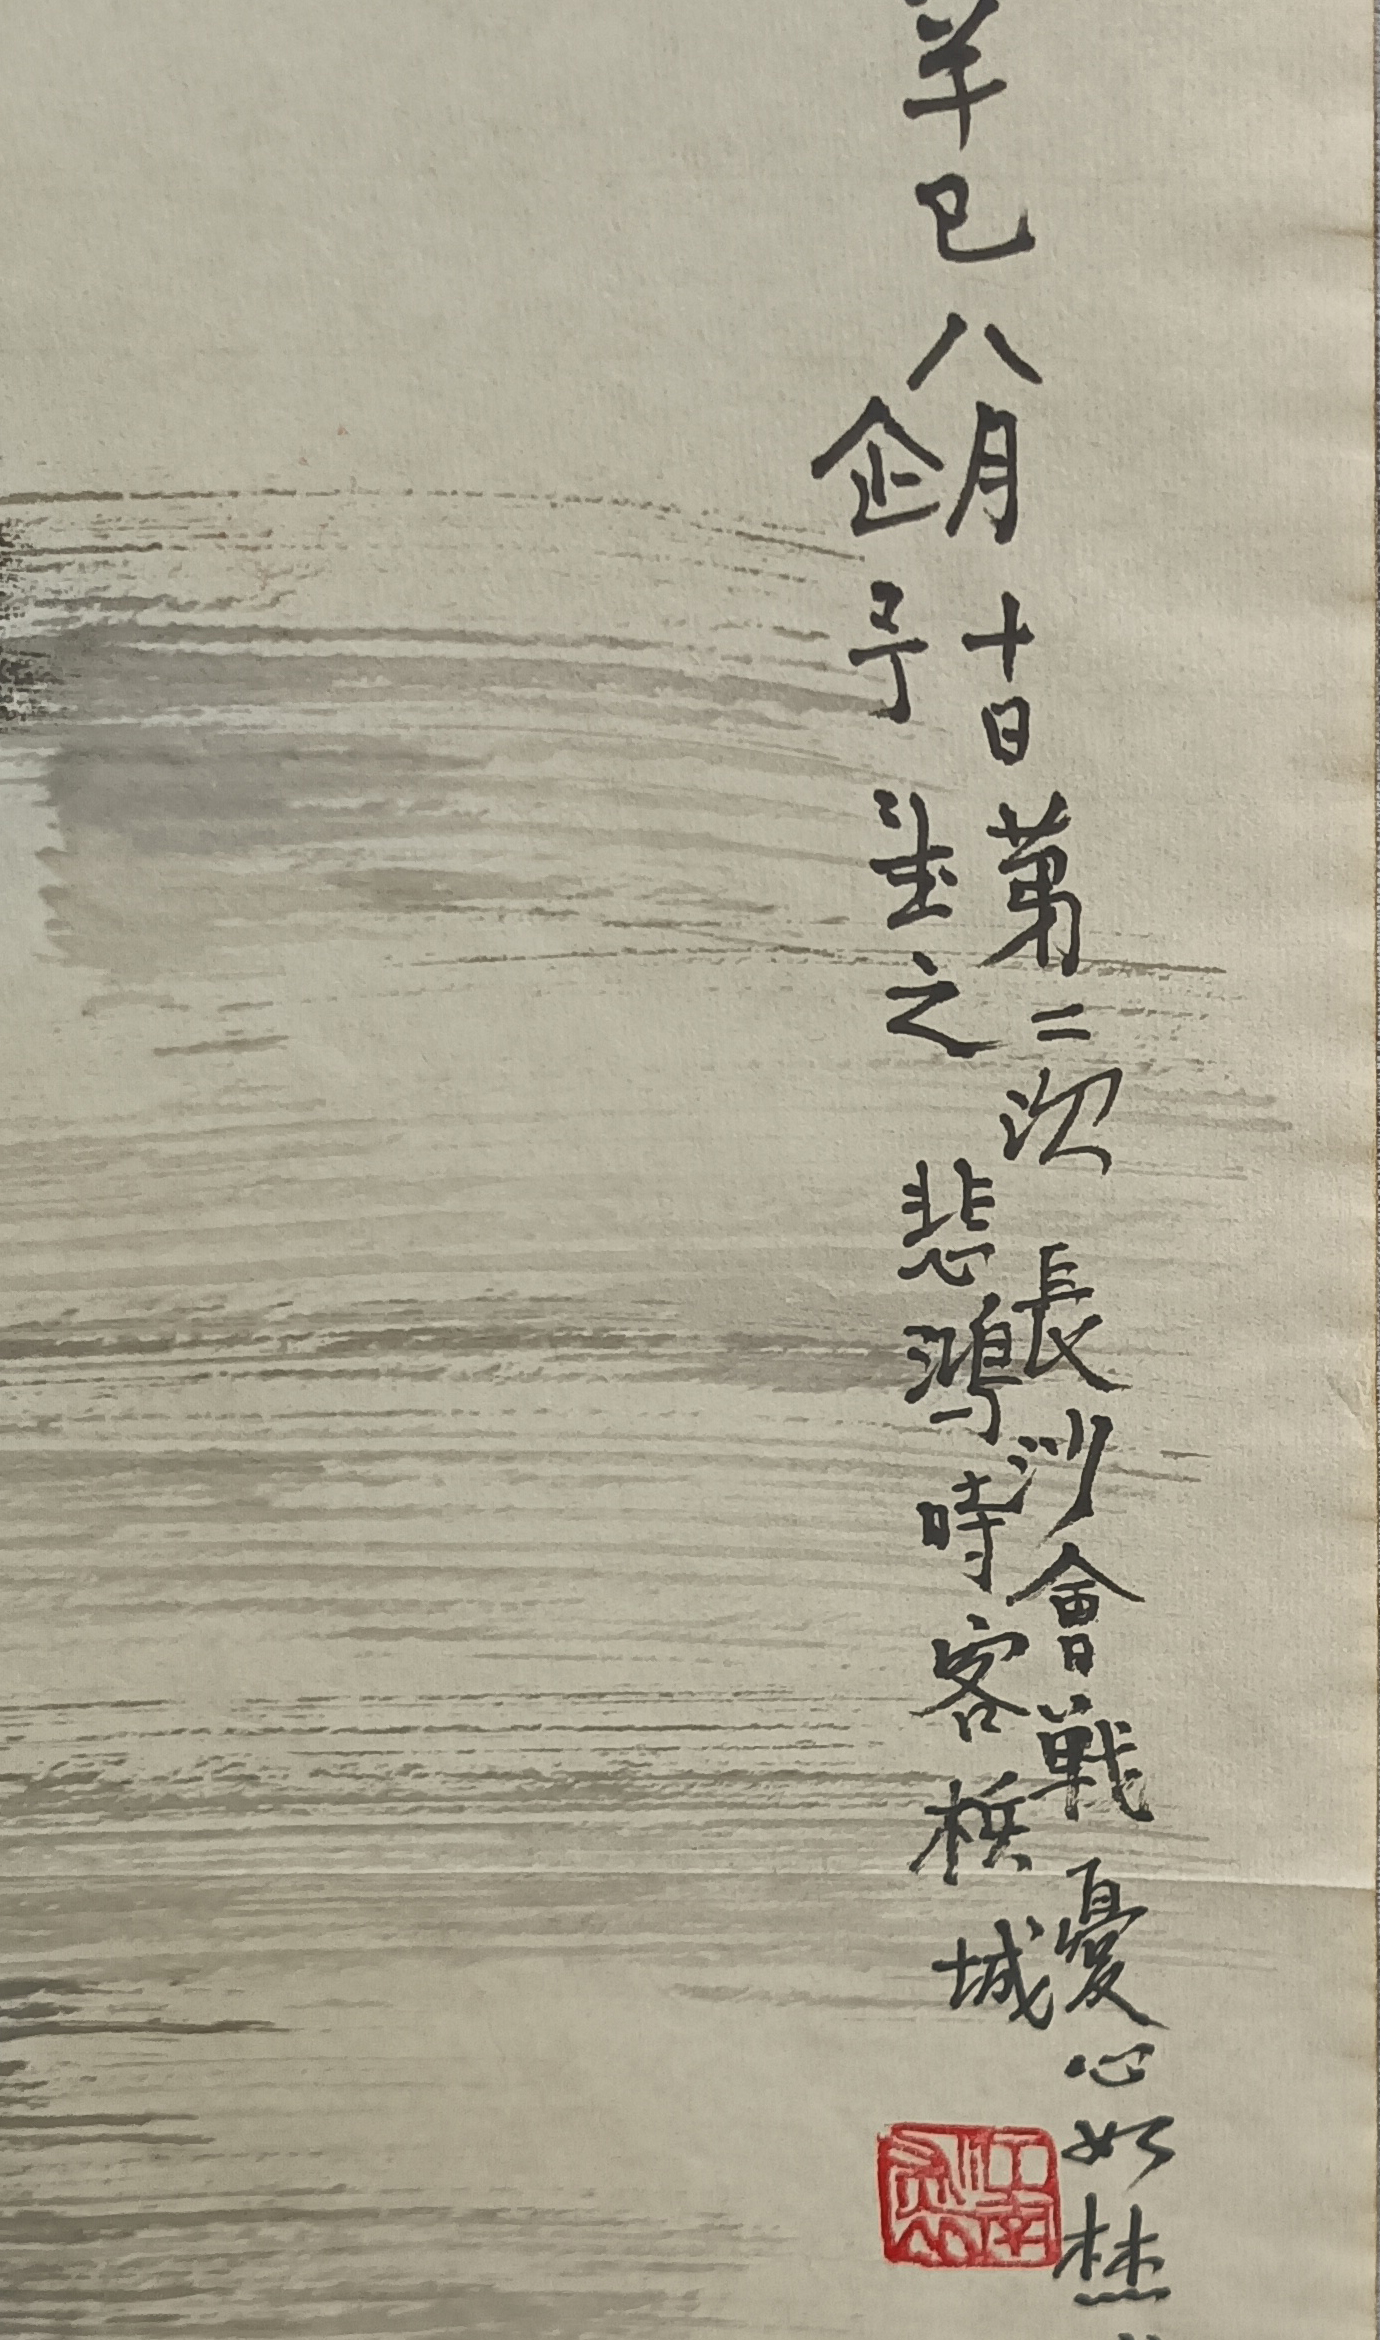 辛巳八月十日第二次長沙會戰憂心如焚
企予望之 悲鴻時客槟城